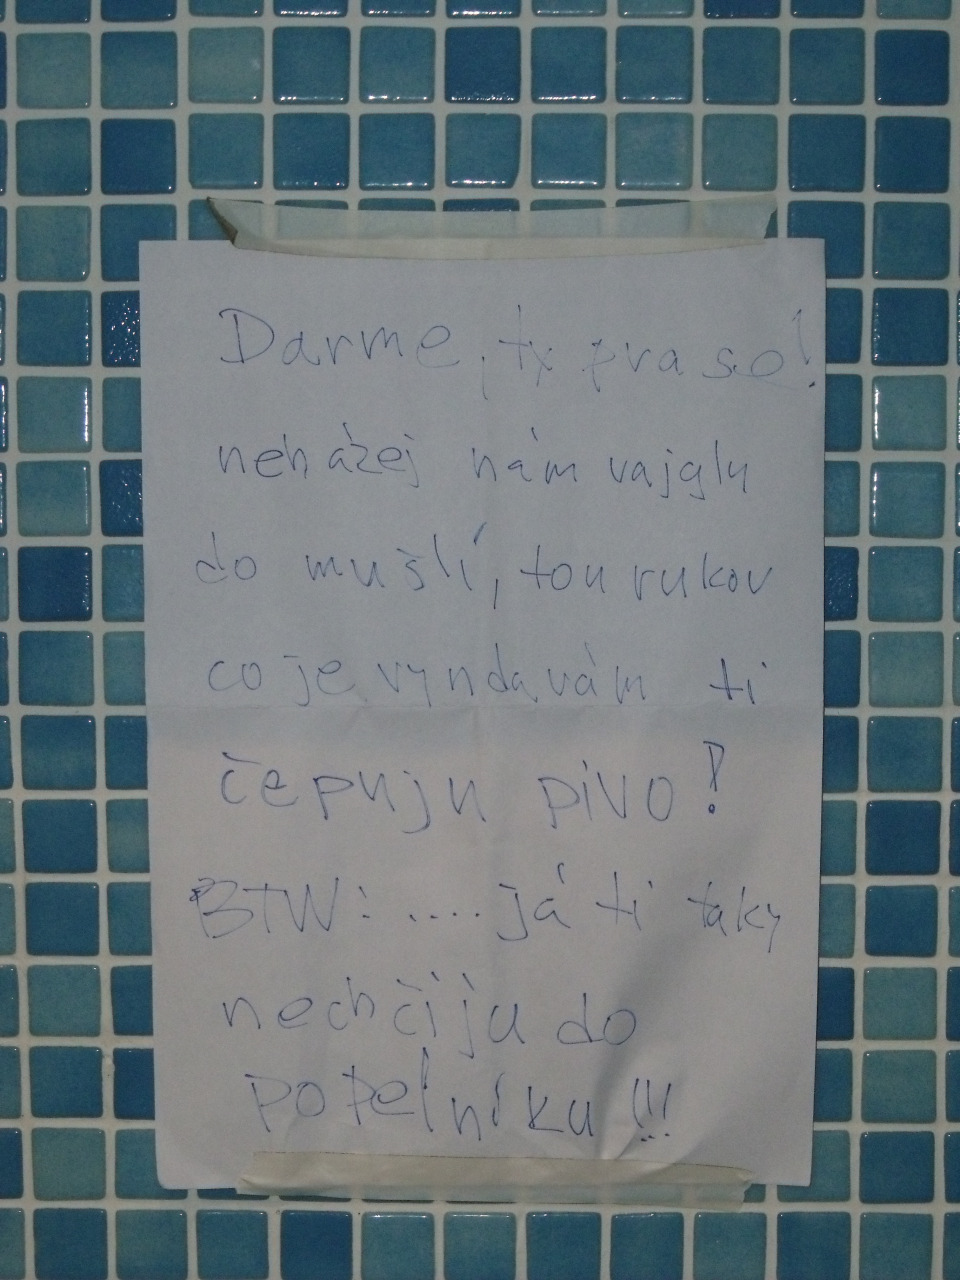 Darme, ty prase!
neházej nám vajgly
do mušlí, tou rukou
co je vyndavám ti
čepuju pivo!
BTW: .... já ti taky
nechčiju do
popelníku!!!